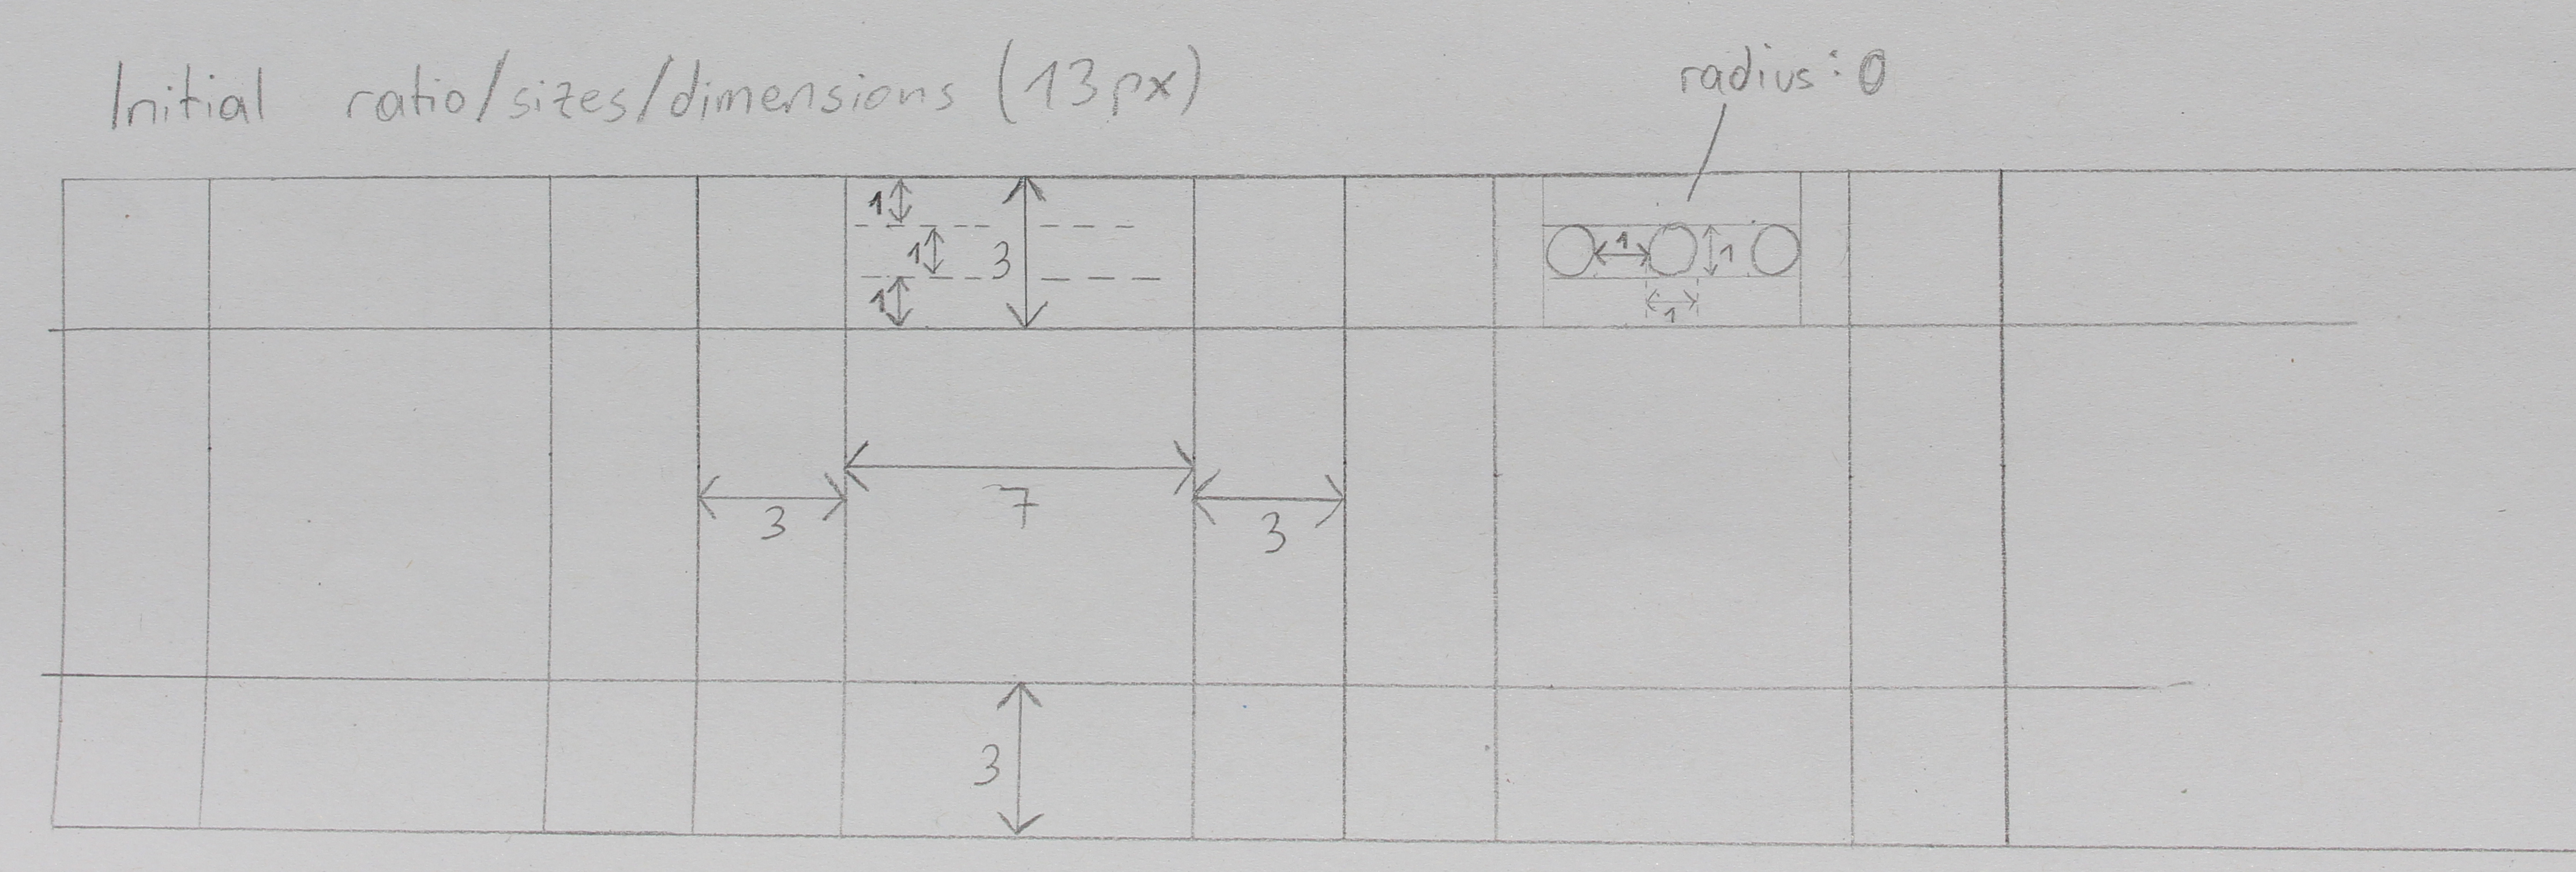 Initial ratio/sizes/dimensions (13px)
radius: 0
1
1 3
1
1 1
1
7
3 3
3